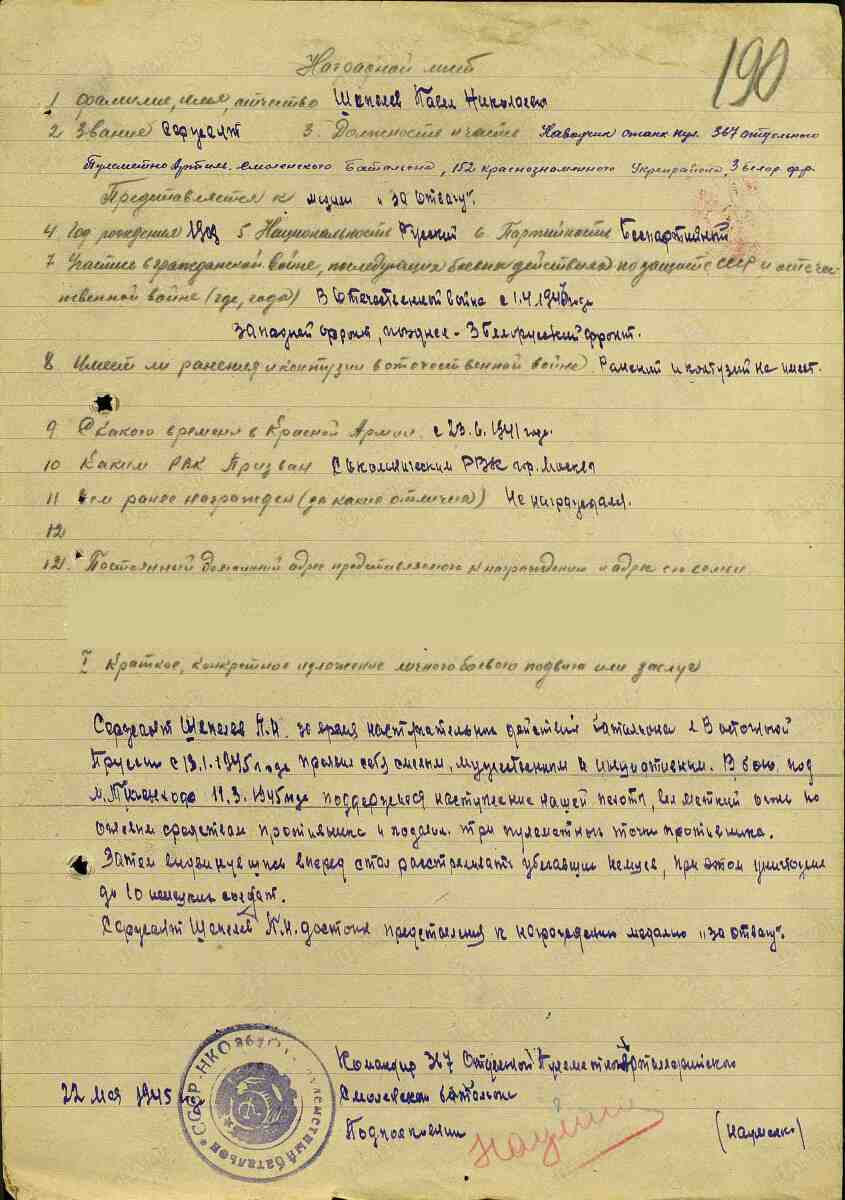 190
Наградной лист
1 Фамилие, имя, отчество Шепелев Павел Николаевич
2 Звание Сержант 3. Должность и часть Наводчик станк. пул. 367 отдельного
Пулеметно Артиль. Смоленского Батальона, 152 краснознаменного Укрепрайона, 3 Белор. фр.
Представляется к медали "За Отвагу".
4 Год рождения 5 Национальность Русский 6 Партийность Беспартийный
7 Участие в гражданской войне, последующих боевых действиях по защите СССР и отече-
ственной войне (где, года) В Отечественной войне с
Западный фронт, позднее - 3 Белорусский фронт.
8 Имеет ли ранения и контузии в отечественной войне Ранений и контузий не имеет.
9 С какого времени в Красной Армии с 23.6.1941 года.
10 Каким РВК Призван Сокольническим РВК гор. Москва
11 Чем ранее награжден (за какие отличия) Не награждался.
12
12. Постоянный домашний адрес представляемого к награждению и адрес его семьи
I Краткое, конкретное изложение личного боевого подвига или заслуг
Сержант Шепелев П.Н. за время наступательных действий батальона в Восточной
Пруссии с 13.1.1945 года проявил себя смелым, мужественным и инициативным. В бою под
м. 11.3.1945 года поддерживая наступление нашей пехоты, вел меткий огонь по
огневым средствам противника и подавил три пулеметных точки противника.
Затем выдвинувшись вперед стал расстреливать убегающих немцев, при этом уничтожил
до 10 немецких солдат.
Сержант Шепелев П.Н. достоин представления к награждению медалью "За отвагу".
Командир 367 Отдельной Пулеметно Артиллерийского
22 мая 1945 Смоленского батальона
Подполковник (Науменко)
СССР НКО 367 пулеметный батальон